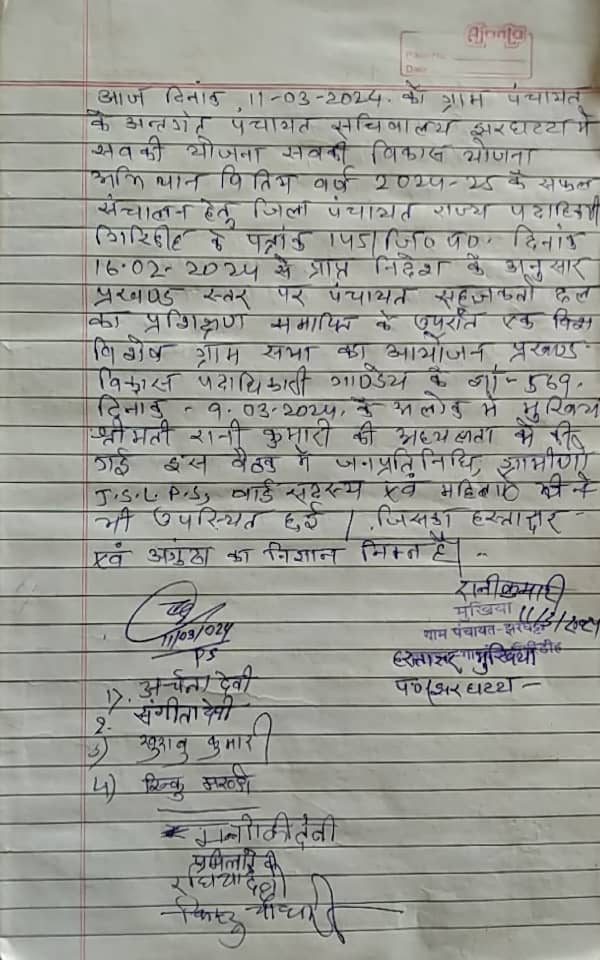 आज दिनांक 11-03-2024 को ग्राम पंचायत
के अन्तर्गत पंचायत सचिवालय झरघट्टा में
सबकी योजना सबकी विकास योजना
अभियान वितिय वर्ष 2024-25 के सफल
संचालन हेतु जिला पंचायत राज्य पदाधिकारी
गिरिडीह के पत्रांक 145/जि० पं०. दिनांक
16.02-2024 से प्राप्त निर्देश के अनुसार
प्रखण्ड स्तर पर पंचायत सहजकर्ता दल
का प्रशिक्षण समाप्ति के उपरांत एक
विशेष ग्राम सभा का आयोजन प्रखण्ड
विकास पदाधिकारी गाण्डेय के 569.
दिनांक - 9.03-2024. के अलोक में मुखिया
श्रीमती रानी कुमारी की अध्यक्षता में की
गई इस बैठक में जनप्रतिनिधि, ग्रामीणों
J.S.L.P.S, वार्ड सदस्य एवं महिलाऐं
भी उपस्थित हुई / जिसका हस्ताक्षर -
एवं अंगुठा का निशान निम्न है| -
रानी कुमारी
मुखिया 11/3/2024
ग्राम पंचायत-झरघट्टा
हस्ताक्षर मुखिया
पं०/झरघट्टा -
11/03/024
PS
1). अर्चना देवी
2. संगीता देवी
3) खुशबु कुमारी
4) रिन्कु मरण्डी
देवी
प्रमिला देवी
रधिया देवी
चौधरी